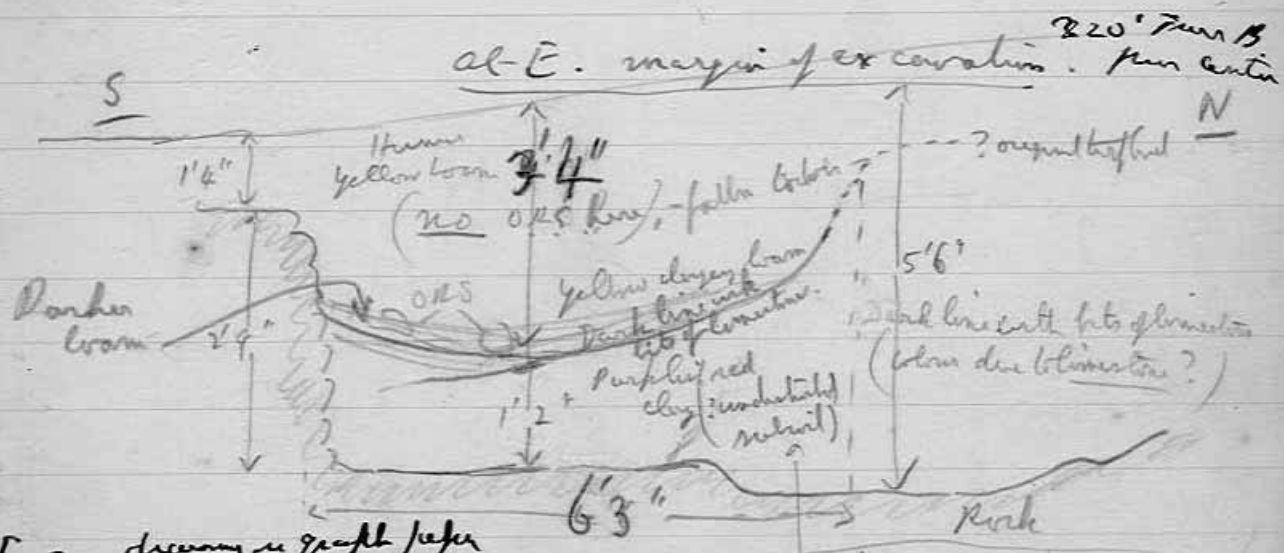 320' from B
at E. margin of excavation. from centre
S
N
1'4"
Humus
yellow loam 3'4"
(no ORS here), - fallen
? original turf level
5'6"
Darker
loam
2'9"
ORS
yellow clayey loam
Dark line with
bits of limestone.
Dark line with bits of limestone
(colour due to limestone?)
Purply red
clay (? undisturbed
subsoil)
1'2"
6'3"
Rock
drawing on graph paper